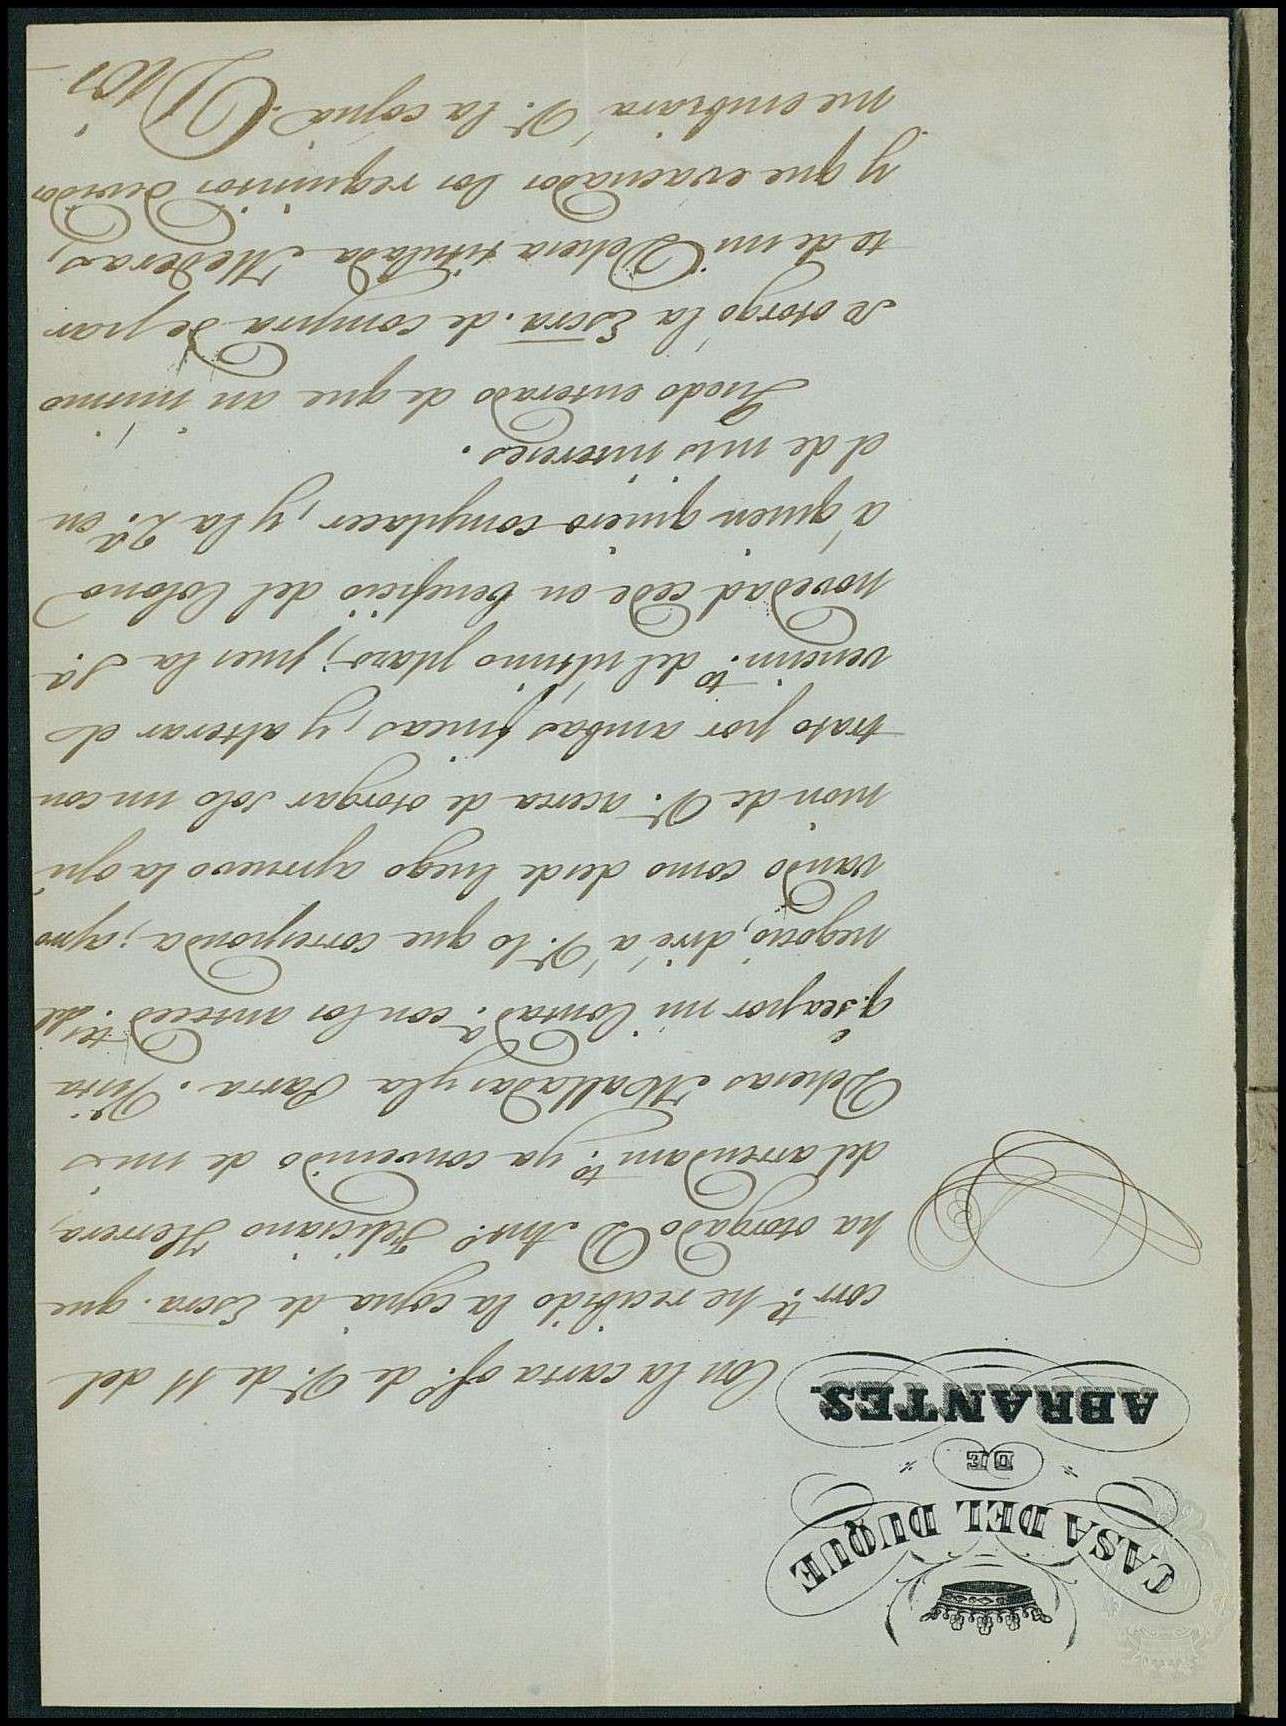 CASA DEL DUQUE
DE
ABRANTES.
Con la carta of.º de V. de 11 del
corr.te he recibido la copia de Escra. que
ha otorgado D. Ant.º Feliciano Herrera,
del arrendam.to ya convenido de mis
Dehesas Malladas y la Parra. Vista
q.e sea por mi Contad.a con los anteced.tes del
negocio, diré á V. lo que corresponda; apro
vando como desde luego apruevo la opi
nion de V. acerca de otorgar solo un con
trato por ambas fincas, y alterar el
vencim.to del ultimo plazo; pues la 1.ª
novedad cede en beneficio del Colono
á quien quiero complacer, y la 2.ª en
el de mis intereses.
Quedo enterado de que an mismo
se otorgó la Escra. de compra de par
te de mi Dehesa titulada Mederas,
y que evacuados los requisitos devidos
me embiara V. la copia. Dios